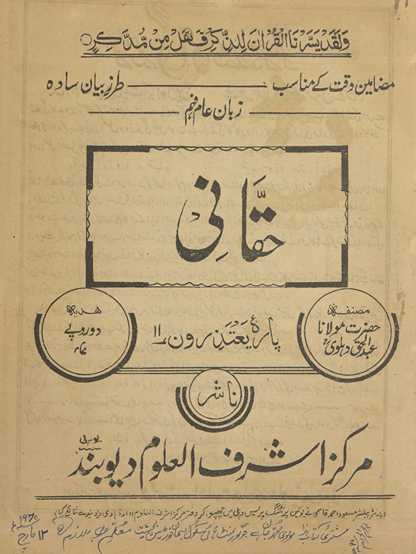 وَلَقَدْ يَسَّرْنَا الْقُرْاٰنَ لِلذِّكْرِ فَهَلْ مِنْ مُّدَّكِرٍ
مضامین وقت کے مناسب طرز بیان سادہ
زبان عام فہم
حقّانی
مصنفہ
حضرت مولانا
عبدالحق دہلویؒ
پارہ یعتذرون ۱۱
ھدیہ
دو روپے
ناشر
مرکز اشرف العلوم دیوبند
یوپی